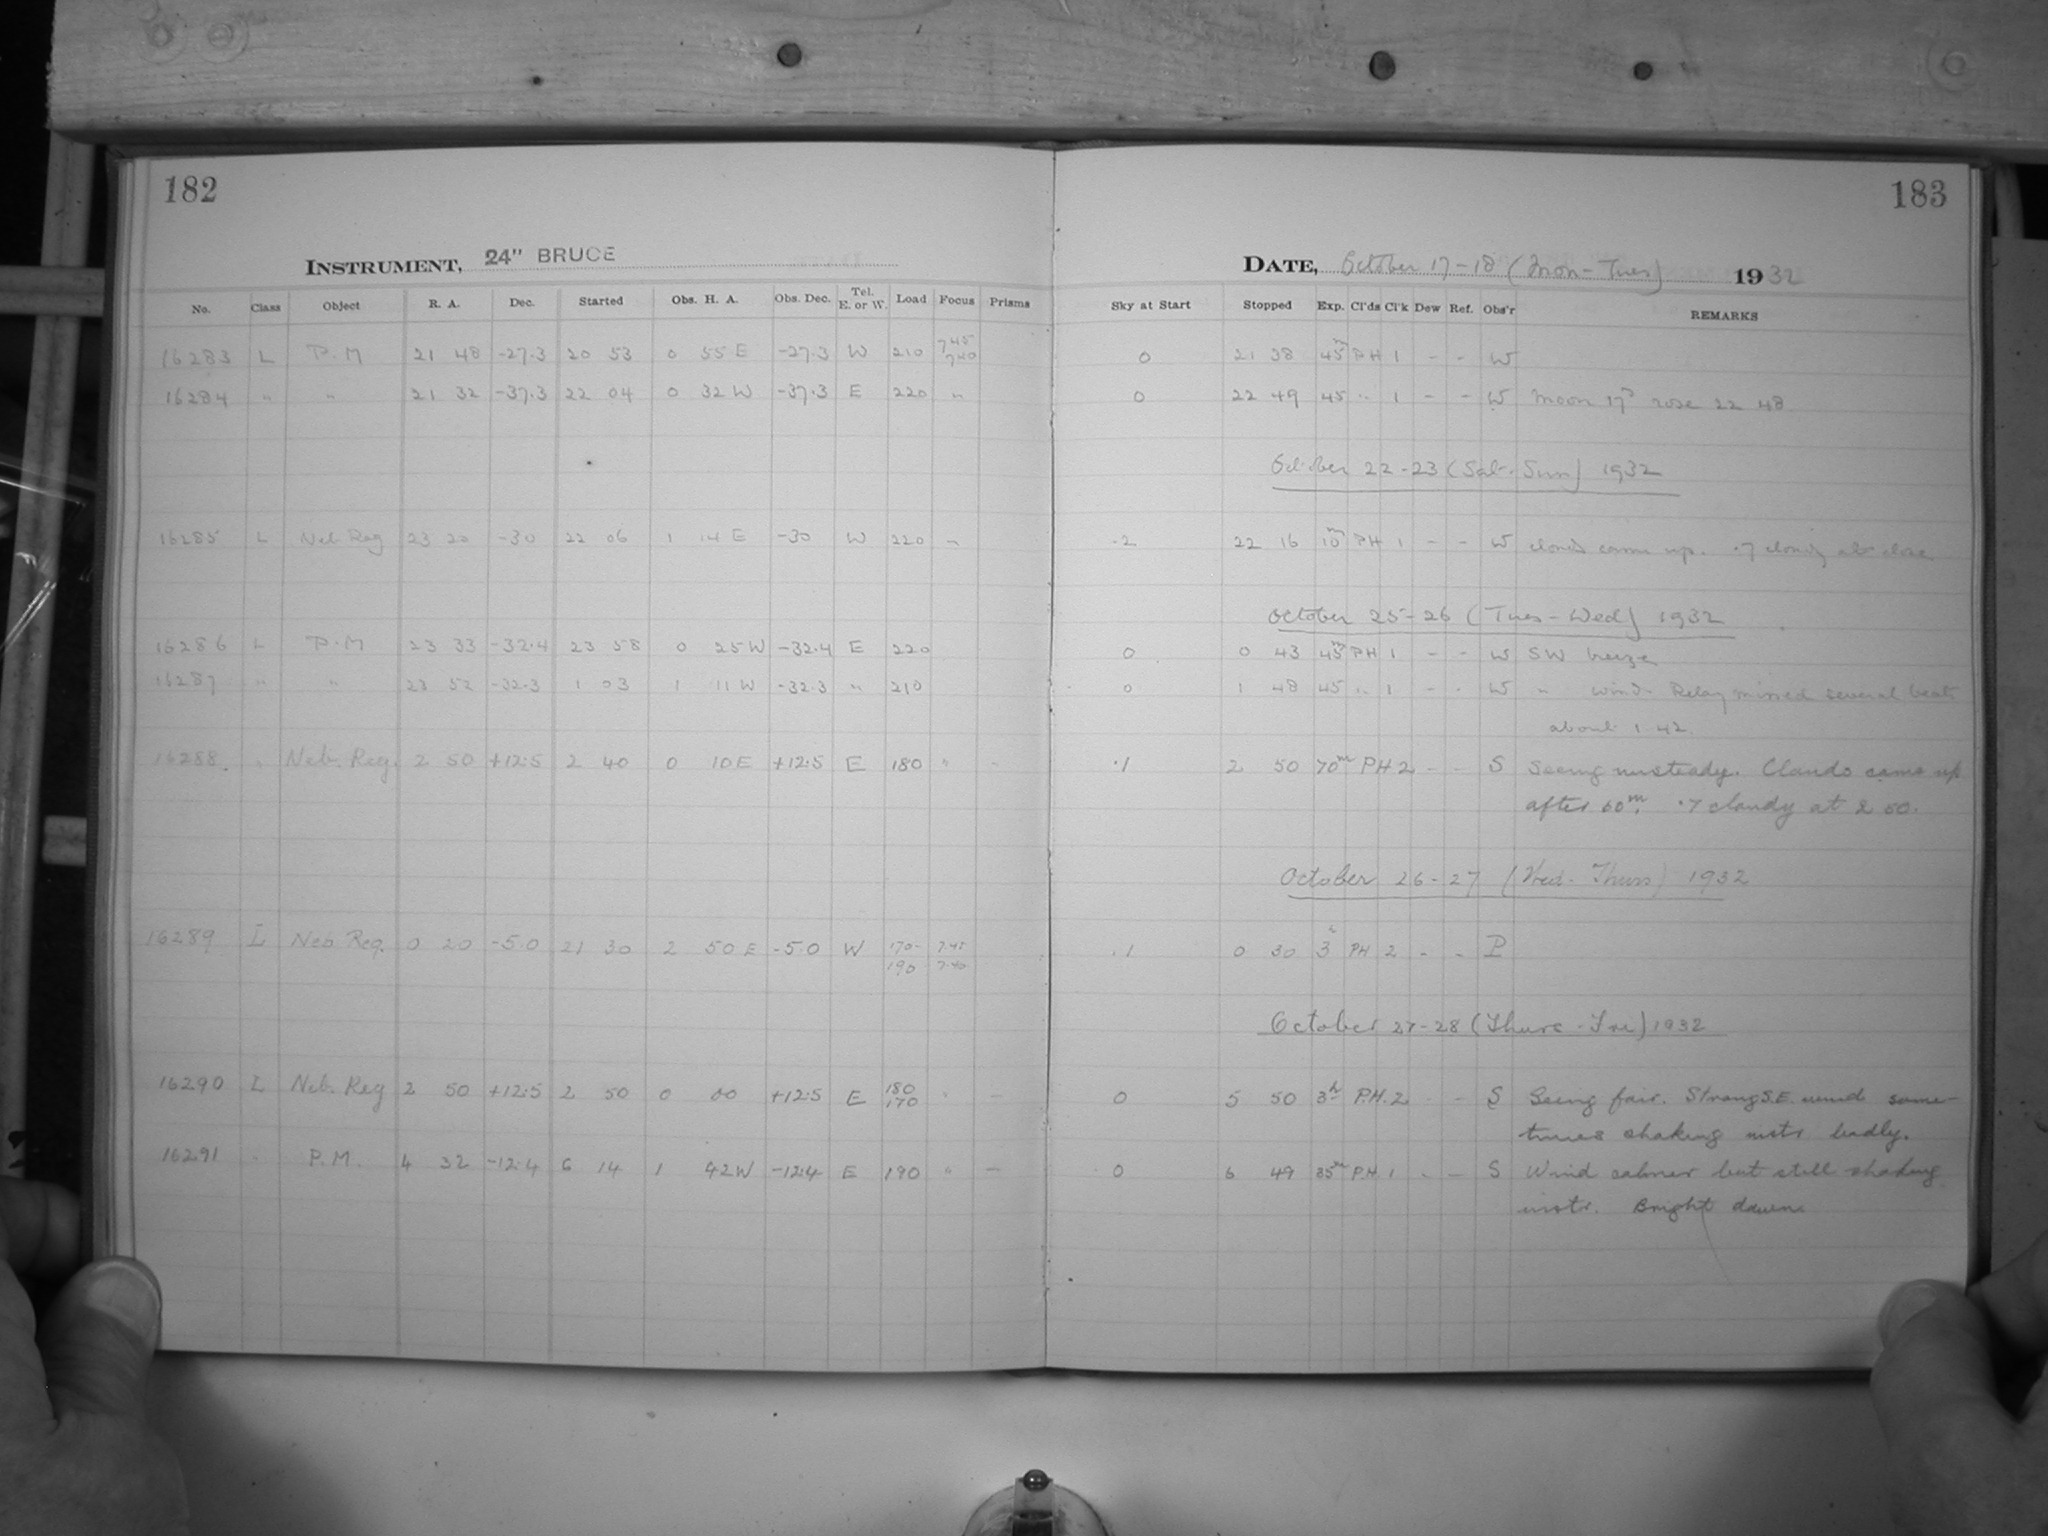 182
INSTRUMENT, 24" BRUCE
No. Class Object R. A. Dec. Started Obs. H. A. Obs. Dec. Tel. E. or W. Load Focus Prisms
16283 L P.M 21 48 -27.3 20 53 0 55 E -27.3 W 210 7.45 7.40
16284 " " 21 32 -37.3 22 04 0 32 W -37.3 E 220 "
16285 L Neb Reg 23 20 -30 22 06 1 14 E -30 W 220 "
16286 L P.M 23 33 -32.4 23 58 0 25 W -32.4 E 220
16287 " " 23 52 -32.3 1 03 1 11 W -32.3 " 210
16288 " Neb. Reg. 2 50 +12.5 2 40 0 10 E +12.5 E 180 " -
16289 L Neb Reg. 0 20 -5.0 21 30 2 50 E -5.0 W 170- 190 7.45 7.40
16290 L Neb. Reg 2 50 +12.5 2 50 0 00 +12.5 E 180 170 " -
16291 " P.M. 4 32 -12.4 6 14 1 42 W -12.4 E 190 " -
183
DATE, October 17-18 (Mon-Tues) 1932
Sky at Start Stopped Exp. Cl'ds Cl'k Dew Ref. Obs'r REMARKS
0 21 38 45m PH 1 - - W
0 22 49 45 " 1 - - W Moon 17d rose 22 48
October 22-23 (Sat-Sun) 1932
.2 22 16 10m PH 1 - - W clouds came up. .7 cloudy at close
October 25-26 (Tues-Wed) 1932
0 0 43 45m PH 1 - - W SW breeze
0 1 48 45 " 1 - - W " wind. Relay missed several beats
about 1 42.
.1 2 50 70m PH 2 - - S Seeing unsteady. Clouds came up
after 60m. .7 cloudy at 2 50.
October 26-27 (Wed-Thurs) 1932
.1 0 30 3h PH 2 - - P
October 27-28 (Thurs-Fri) 1932
0 5 50 3h P.H. 2 - - S Seeing fair. Strong S.E. wind some-
times shaking instr badly.
0 6 49 35m P.H. 1 - - S Wind calmer but still shaking
instr. Bright dawn.